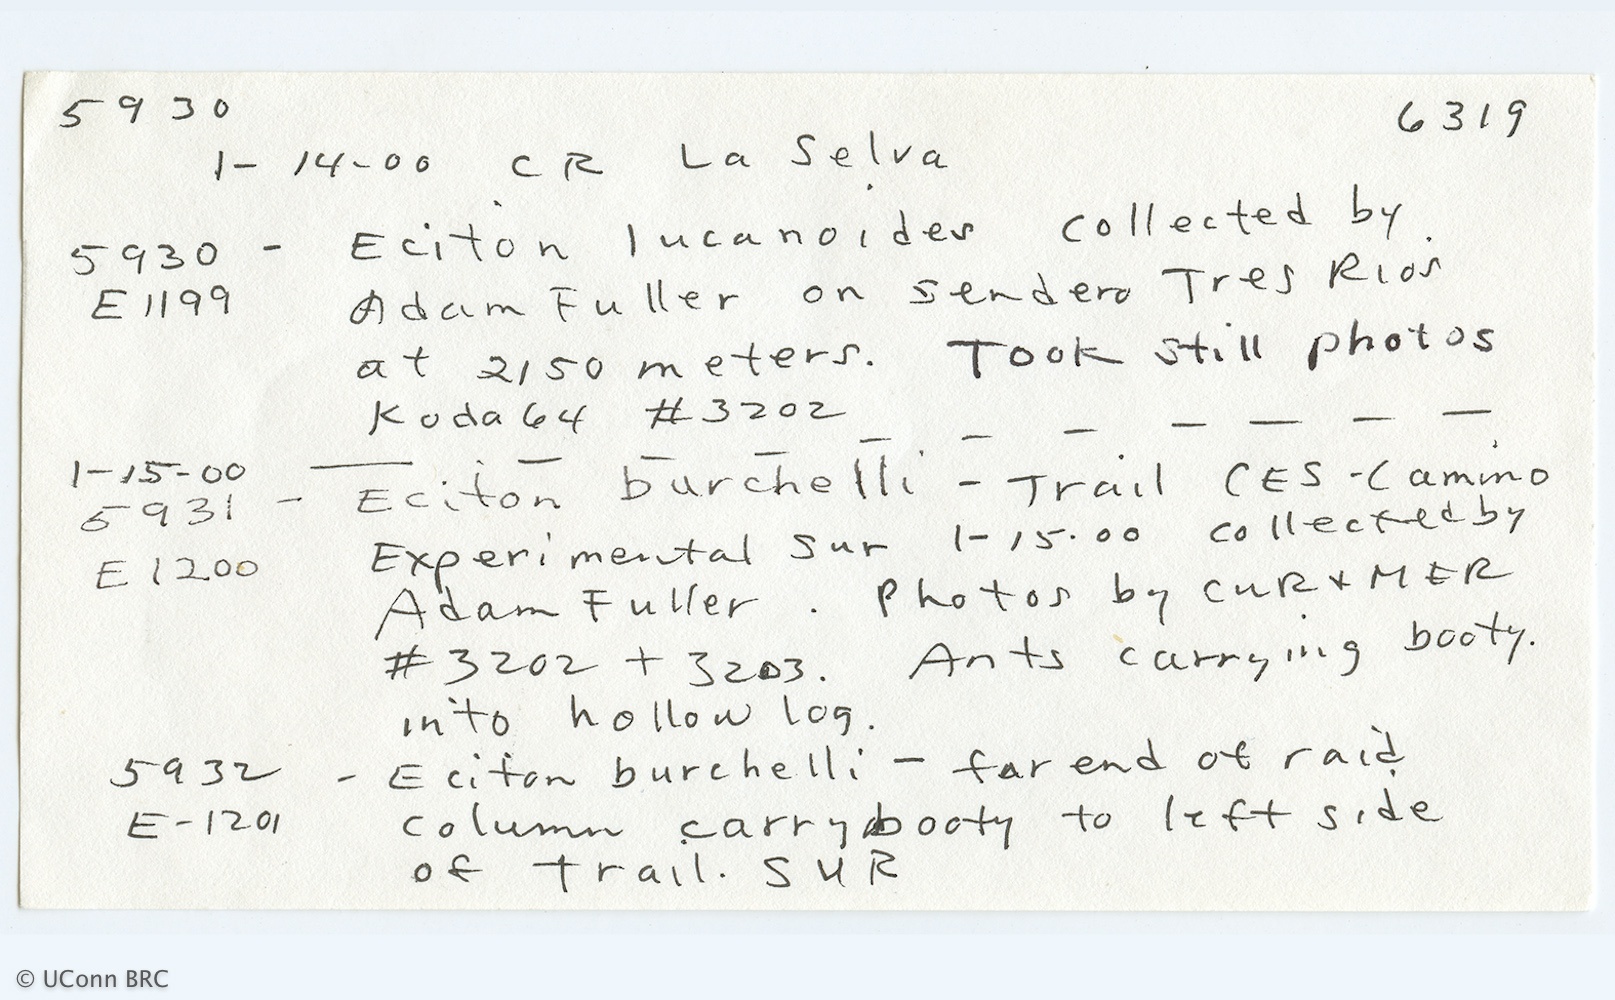 5930 6319
1-14-00 CR La Selva
5930 - Eciton lucanoides collected by
E1199 Adam Fuller on sendero Tres Rios
at 2150 meters. Took still photos
Koda 64 #3202
1-15-00
5931 - Eciton burchelli - Trail CES-Camino
Experimental Sur 1-15.00 collected by
E1200
Adam Fuller. Photos by CWR + MER
#3202 + 3203. Ants carrying booty.
into hollow log.
5932 - Eciton burchelli - far end of raid
E-1201 column carry booty to left side
of trail. SUR
© UConn BRC